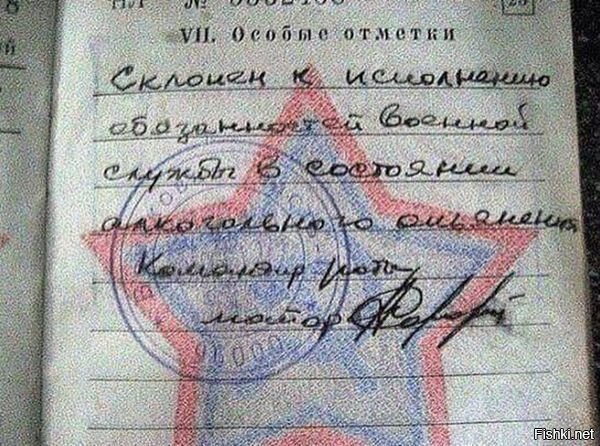 VII. Особые отметки
Склонен к исполнению
обязанностей военной
службы в состоянии
алкогольного опьянения
Командир роты
майор
Fishki.net